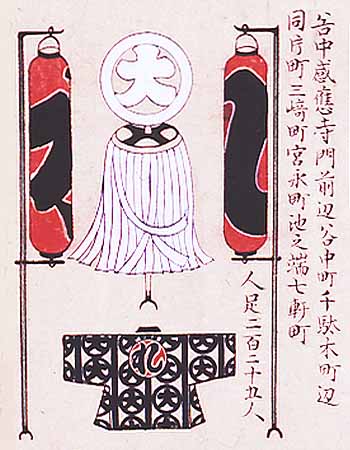 谷中感應寺門前辺谷中町千駄木町辺
同片町三﨑町宮永町池之端七軒町
人足二百二十五人
大
れ